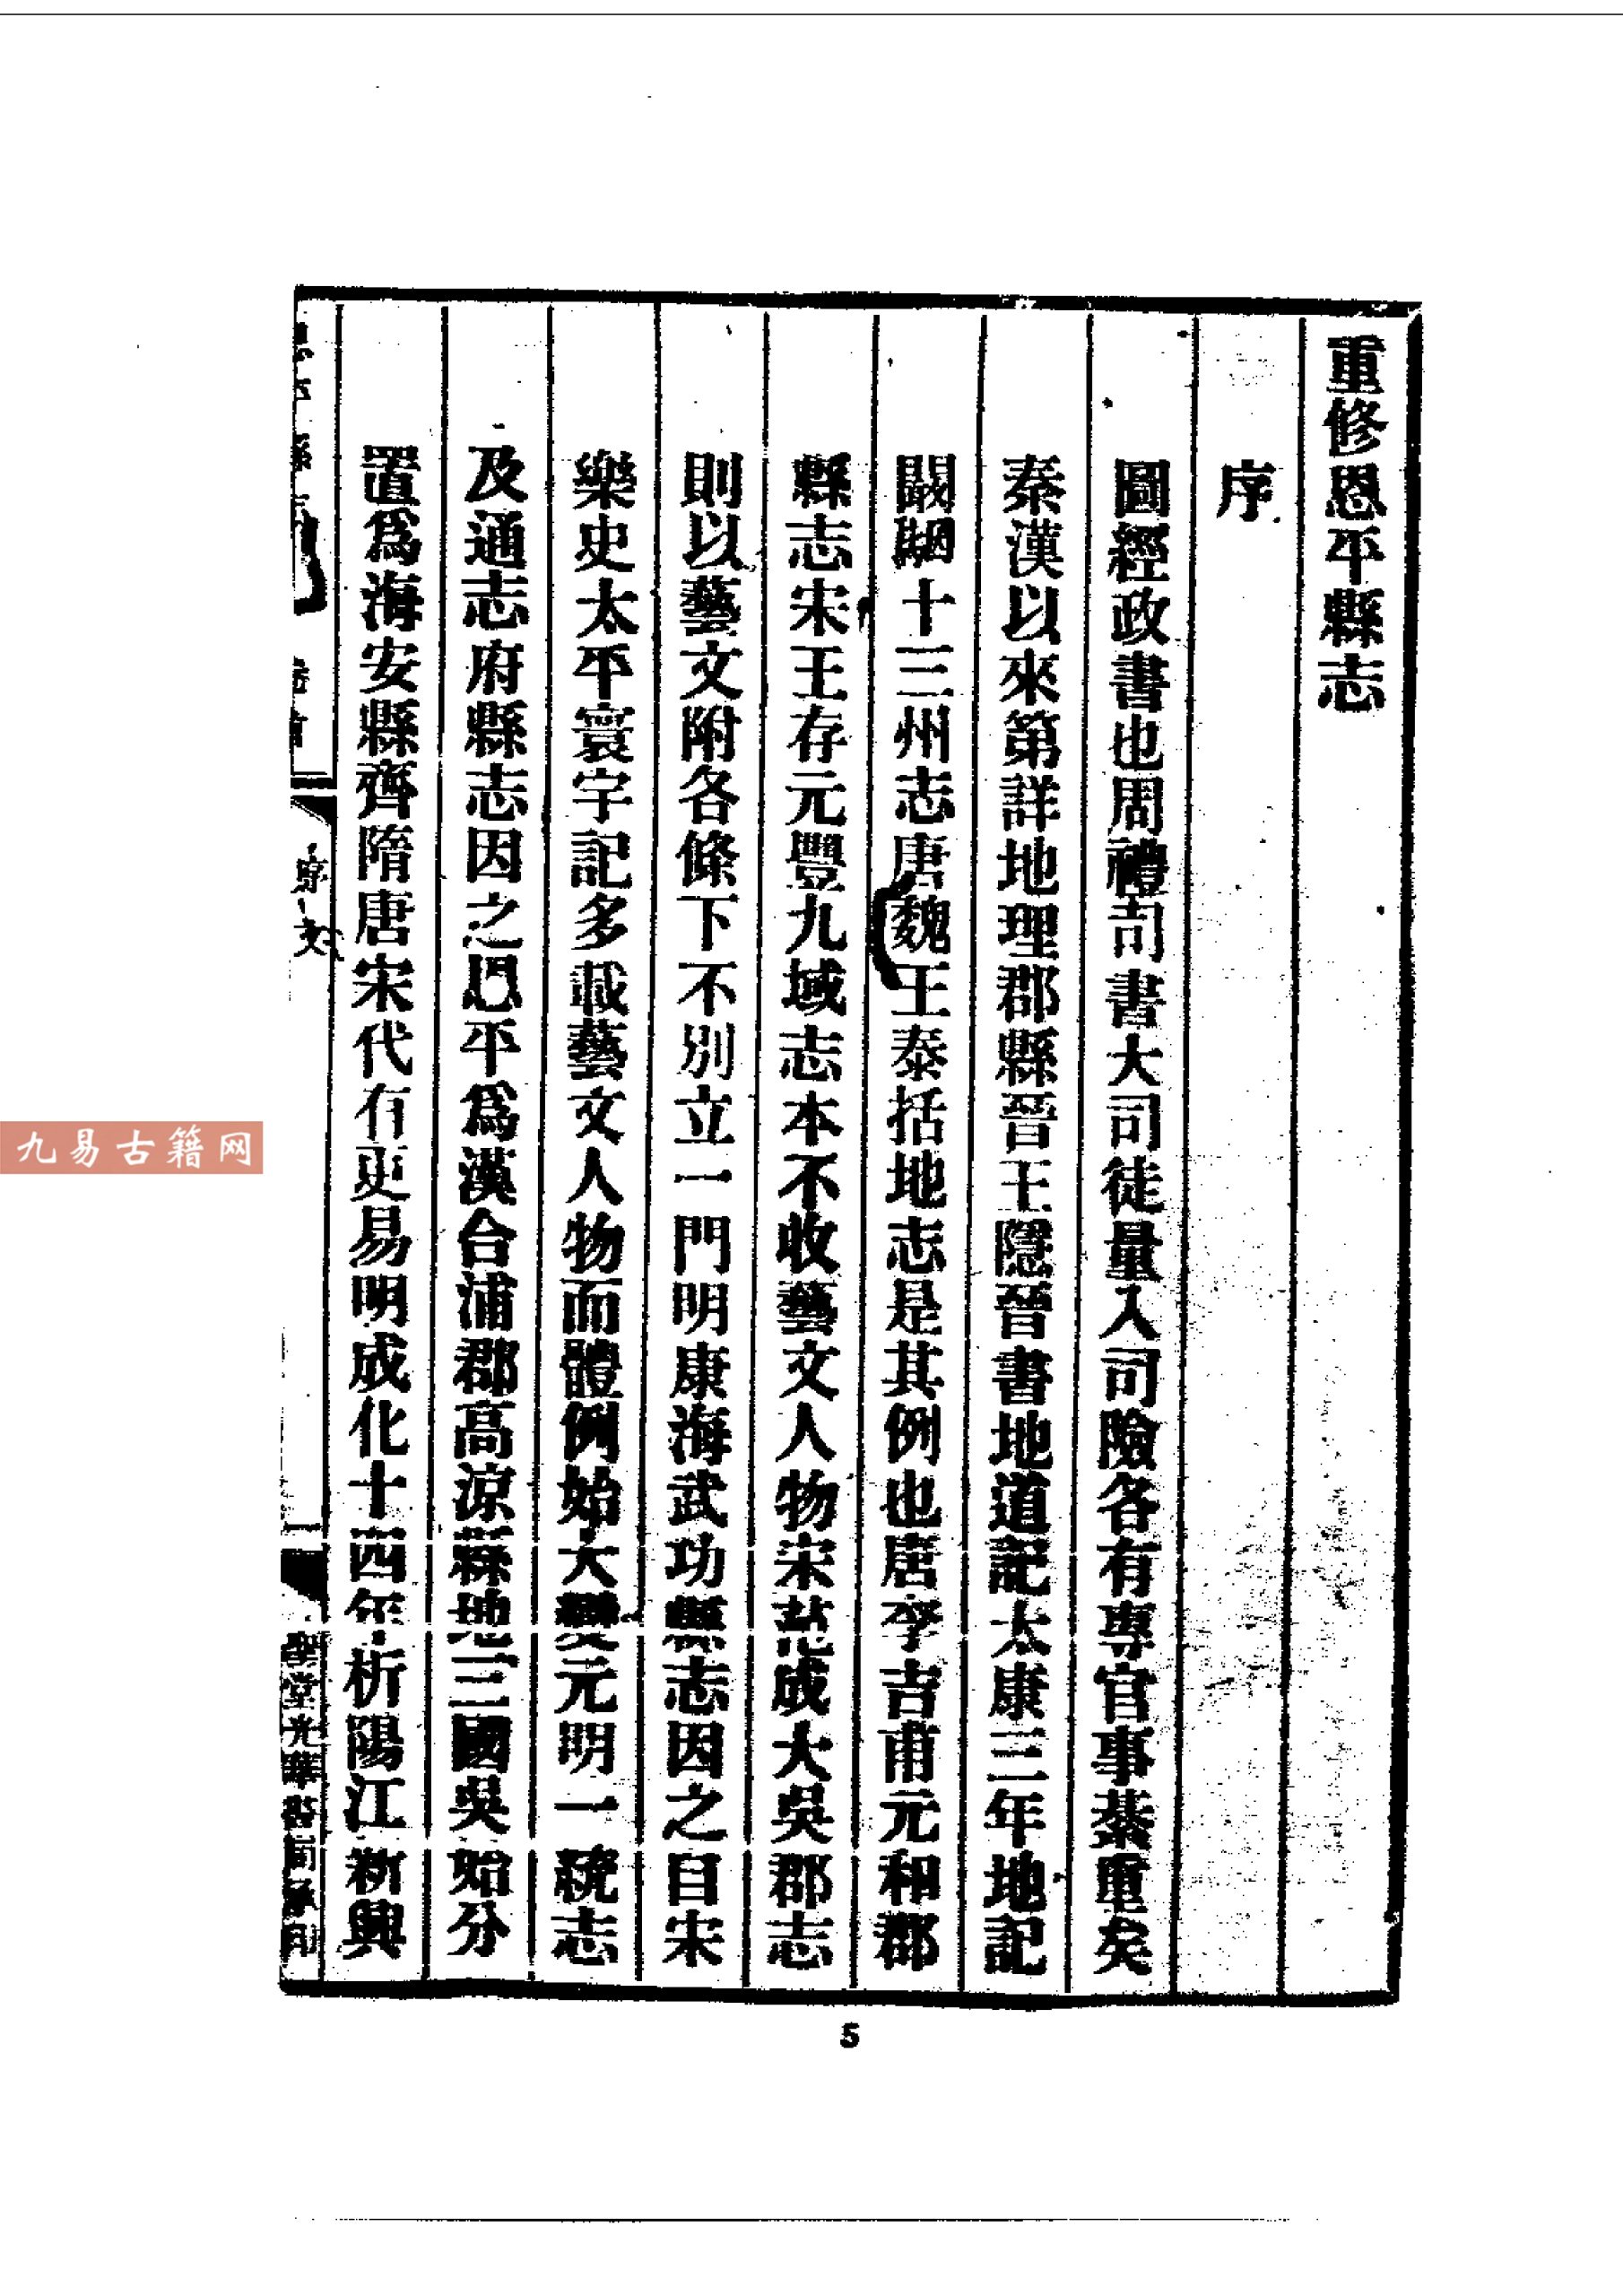 重修恩平縣志
序
圖經政書也周禮司書大司徒量人司險各有專官事綦重矣
秦漢以來第詳地理郡縣晉王隱晉書地道記太康三年地記
闞駰十三州志唐魏王泰括地志是其例也唐李吉甫元和郡
縣志宋王存元豐九域志本不收藝文人物宋范成大吳郡志
則以藝文附各條下不別立一門明康海武功縣志因之自宋
樂史太平寰宇記多載藝文人物而體例始大變元明一統志
及通志府縣志因之恩平爲漢合浦郡高涼縣地三國吳始分
置爲海安縣齊隋唐宋代有更易明成化十四年析陽江新興
恩平縣志 卷首 序文 一 聖堂光華書局承印
5
九易古籍网